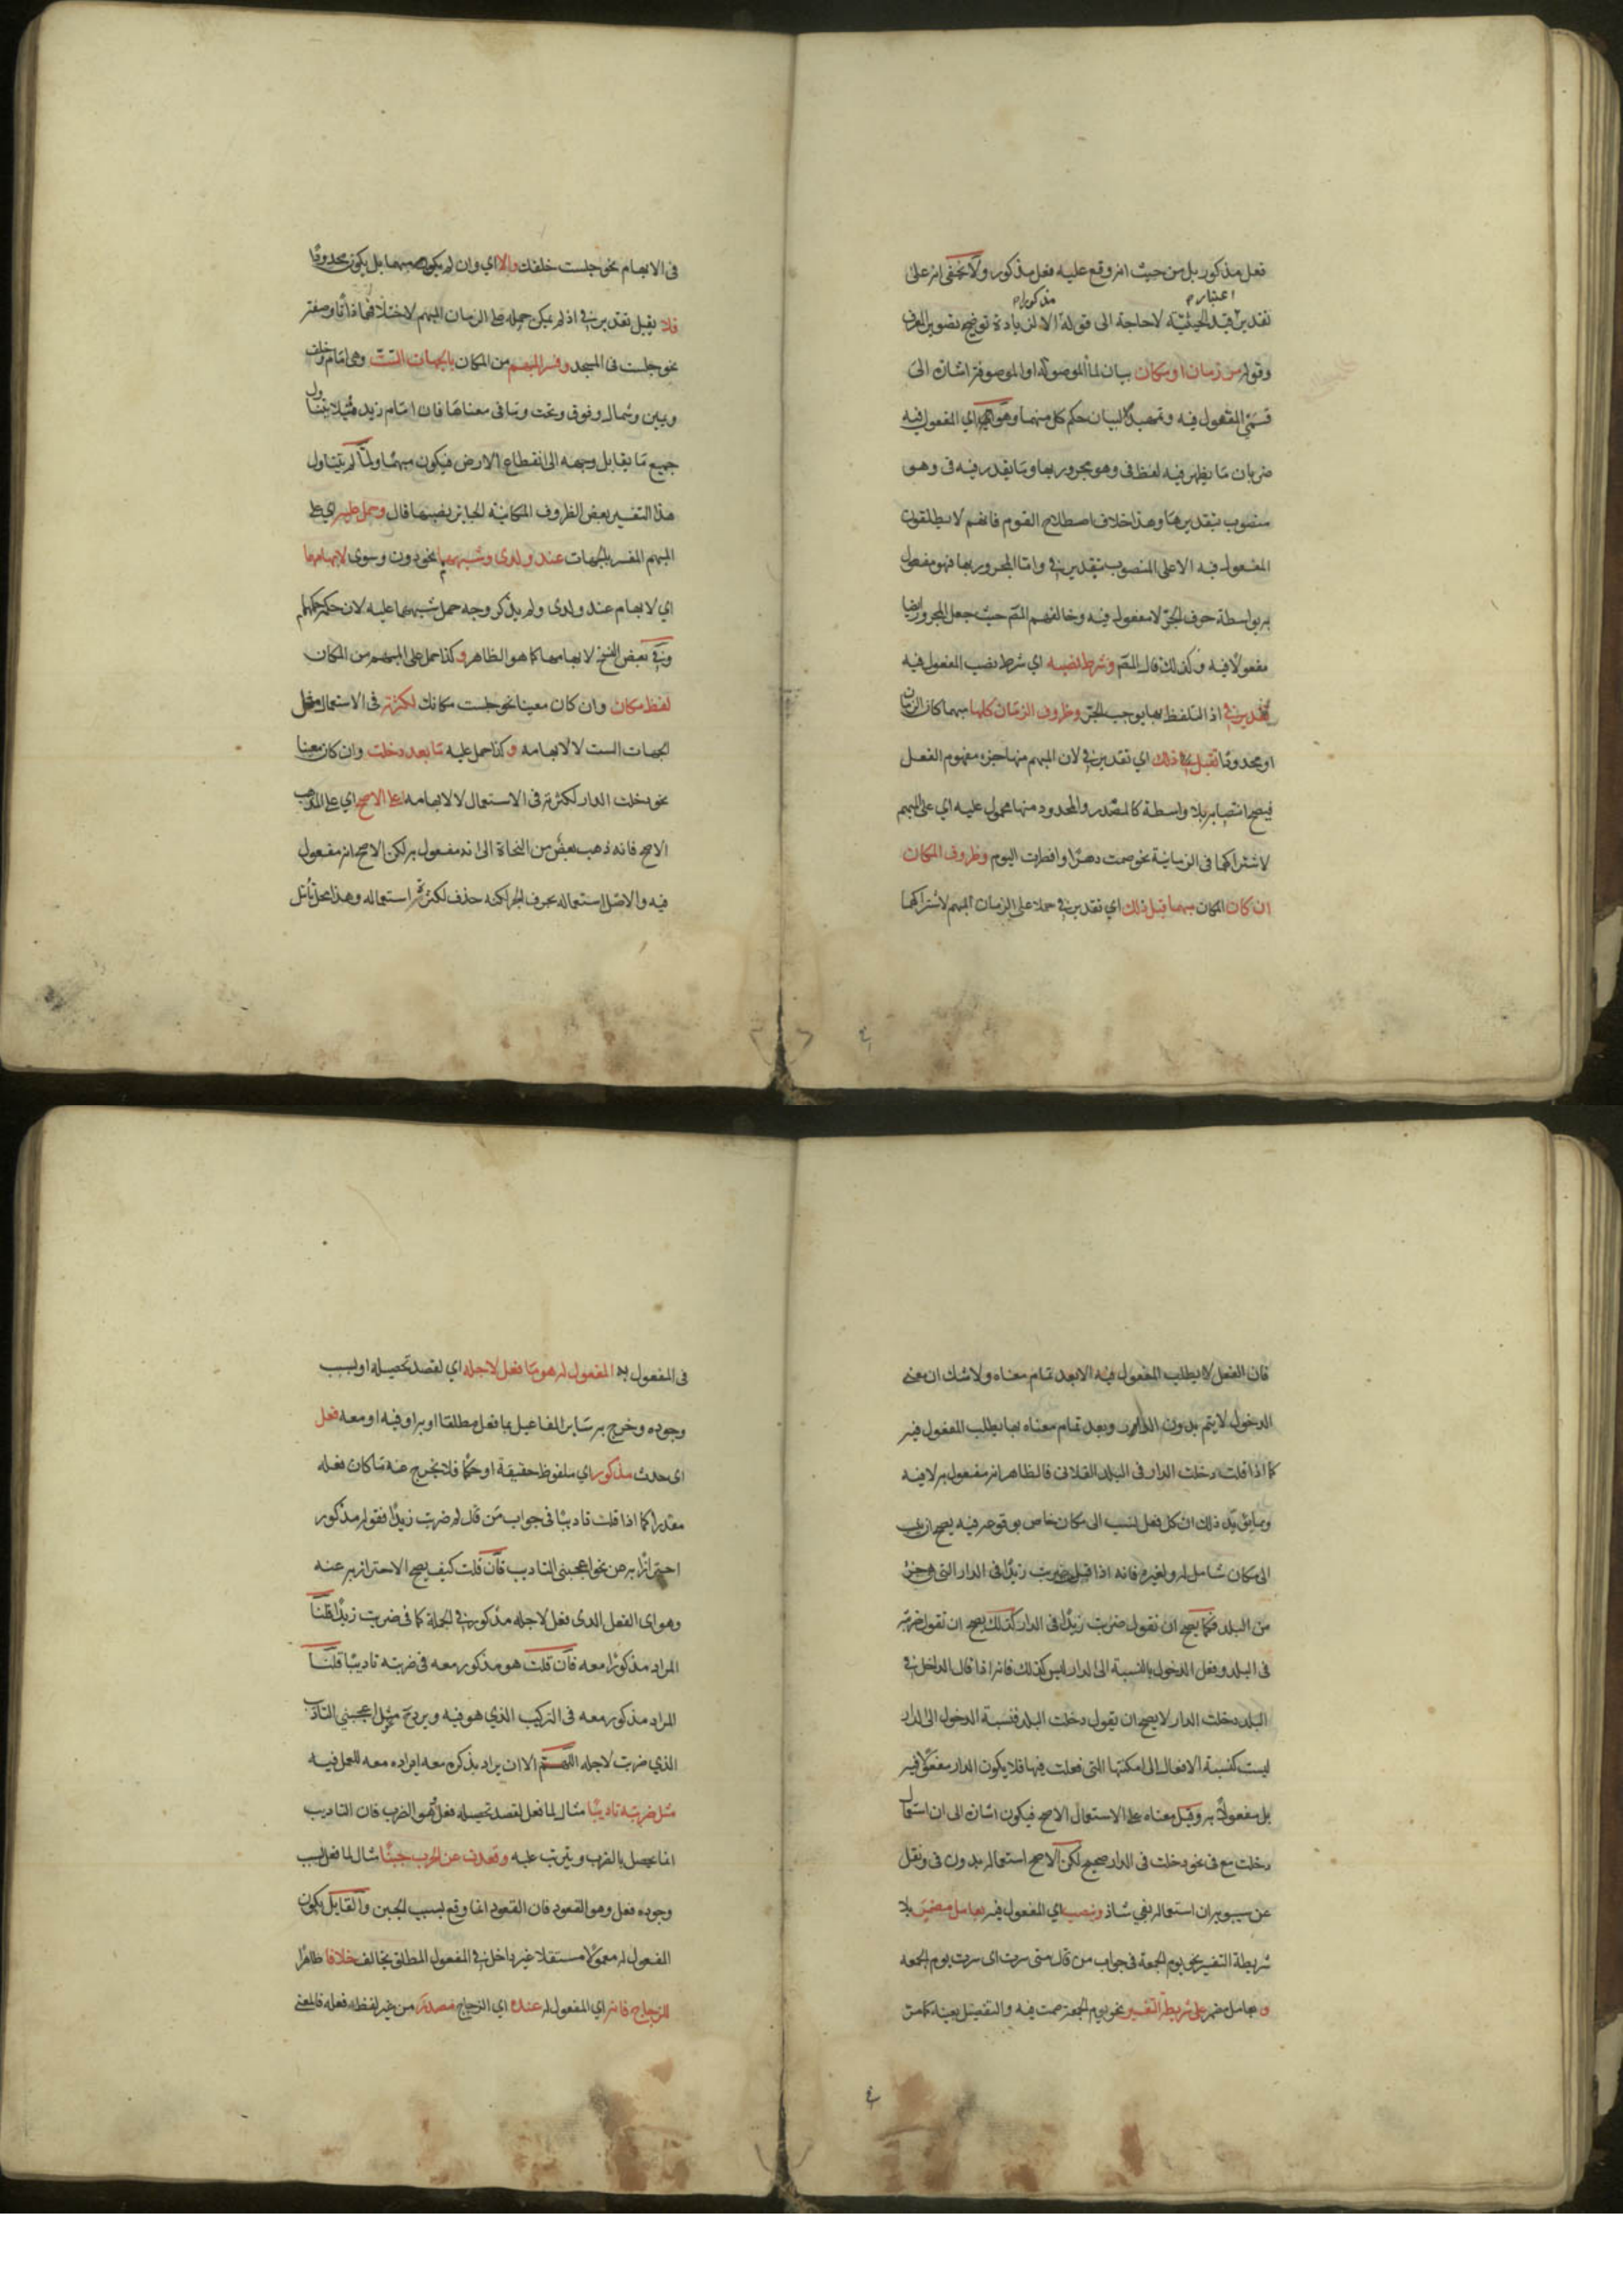 فعل مذكور بل من حيث انه وقع عليه فعل مذكور ولا يخفى انه على
اعتباره
مذكورا
تقدير قيد الحيثية لاحاجة الى قوله الا لزيادة توضيح تصوير المعرف
وقوله من زمان او مكان بيان لما الموصولة او الموصوفة اشارة الى
قسمى المفعول فيه وتمهيدا لبيان حكم كل منهما وهو اي المفعول فيه
ضربان ما يظهر فيه لفظ فى وهو مجرور بها وما يقدر فيه فى وهو
منصوب بتقديرها وهذا خلاف اصطلاح القوم فانهم لا يطلقون
المفعول فيه الا على المنصوب بتقدير في واما المجرور بها فهو مفعول
به بواسطة حرف الجر لا مفعول فيه وخالفهم المصـ حيث جعل المجرور ايضا
مفعولا فيه وكذلك قال المصـ وشرط نصبه اي شرط نصب المفعول فيه
تقدير في اذ التلفظ بها يوجب الجر وظروف الزمان كلها مبهما كان الزمان
او محدودا تقبل ذلك اي تقدير في لان المبهم منها جزء مفهوم الفعل
فيصح انتصابه بلا واسطة كالمصدر والمحدود منها محمول عليه اي على المبهم
لاشتراكهما فى الزمانية نحو صمت دهرا وافطرت اليوم وظروف المكان
ان كان المكان مبهما قبل ذلك اي تقدير في حملا على الزمان المبهم لاشتراكهما
فى الابهام نحو جلست خلفك والا اي وان لم يكن مبهما بل يكون محدودا
فلا يقبل تقدير في اذ لم يمكن حمله على الزمان المبهم لاختلافهما ذاتا وصفة
نحو جلست فى المسجد وفسر المبهم من المكان بالجهات الست وهى امام وخلف
ويمين وشمال وفوق وتحت وما فى معناها فان امام زيد مثلا يتناول
جميع ما يقابل وجهه الى انقطاع الارض فيكون مبهما ولما لم يتناول
هذا التفسير بعض الظروف المكانية الجايز نصبها قال وحمل عليه اي على
المبهم المفسر بالجهات عند ولدى وشبههما نحو دون وسوى لابهامهما
اي لابهام عند ولدى ولم يذكر وجه حمل شبههما عليه لان حكمه حكمهما
وفي بعض النسخ لابهامها كما هو الظاهر و كذا حمل على المبهم من المكان
لفظ مكان وان كان معينا نحو جلست مكانك لكثرته فى الاستعمال مثل
الجهات الست لا لابهامه و كذا حمل عليه ما بعد دخلت وان كان معينا
نحو دخلت الدار لكثرته فى الاستعمال لا لابهامه على الاصح اي على المذهب
الاصح فانه ذهب بعض من النحاة الى انه مفعول به لكن الاصح انه مفعول
فيه والاصل استعماله بحرف الجر لكنه حذف لكثرة استعماله وهذا محل تأمل
فان الفعل لا يطلب المفعول فيه الا بعد تمام معناه ولا شك ان معنى
الدخول لا يتم بدون الدار وبعد تمام معناه بها يطلب المفعول فيه
كما اذا قلت دخلت الدار فى البلد الفلانى فالظاهر انه مفعول به لا فيه
ومما يؤيد ذلك ان كل فعل نسب الى مكان خاص بوقوعه فيه يصح ان ينسب
الى مكان شامل له ولغيره فانه اذا قيل ضربت زيدا فى الدار التى هى جزء
من البلد فكما يصح ان نقول ضربت زيدا فى الدار كذلك يصح ان تقول ضربته
فى البلد وفعل الدخول بالنسبة الى الدار ليس كذلك فانه اذا قال الداخل في
البلد دخلت الدار لا يصح ان يقول دخلت البلد فنسبة الدخول الى الدار
ليست كنسبة الافعال الى امكنتها التى فعلت فيها فلا يكون الدار مفعولا فيه
بل مفعولا به وقيل معناه على الاستعمال الاصح فيكون اشارة الى ان استعمال
دخلت مع فى نحو دخلت فى الدار صحيح لكن الاصح استعماله بدون فى ونقل
عن سيبويه ان استعماله بفي شاذ وينصب اي المفعول فيه بعامل مضمر بلا
شريطة التفسير نحو يوم الجمعة فى جواب من قال متى سرت اى سرت يوم الجمعه
و بعامل مضمر على شريطة التفسير نحو يوم الجمعة صمت فيه والتفصيل بعينه كما مر
فى المفعول به المفعول له هو ما فعل لاجله اي لقصد تحصيله او بسبب
وجوده وخرج به ساير المفاعيل مما فعل مطلقا او به او فيه او معه فعل
اى حدث مذكور اي ملفوظ حقيقة او حكما فلا يخرج عنه ما كان فعله
مقدرا كما اذا قلت تاديبا فى جواب من قال لم ضربت زيدا فقوله مذكور
احترازا به عن نحو اعجبنى التاديب فان قلت كيف يصح الاحتراز به عنه
وهو اى الفعل الذى فعل لاجله مذكور في الجملة كما فى ضربت زيدا قلنا
المراد مذكورا معه فان قلت هو مذكور معه فى ضربته تاديبا قلنا
المراد مذكور معه فى التركيب الذي هو فيه ويرد ح مثل اعجبنى التاديب
الذي ضربت لاجله اللهم الا ان يراد بذكره معه ايراده معه للعمل فيه
مثل ضربته تاديبا مثال لما فعل لقصد تحصيله فعل وهو الضرب فان التاديب
انما يحصل بالضرب ويترتب عليه وقعدت عن الحرب جبنا مثال لما فعل بسبب
وجوده فعل وهو القعود فان القعود انما وقع بسبب الجبن والقايل بكون
المفعول له معمولا مستقلا غير داخل في المفعول المطلق يخالف خلافا ظاهرا
للزجاج فانه اي المفعول له عنده اي الزجاج مصدر من غير لفظ فعله فالمعنى